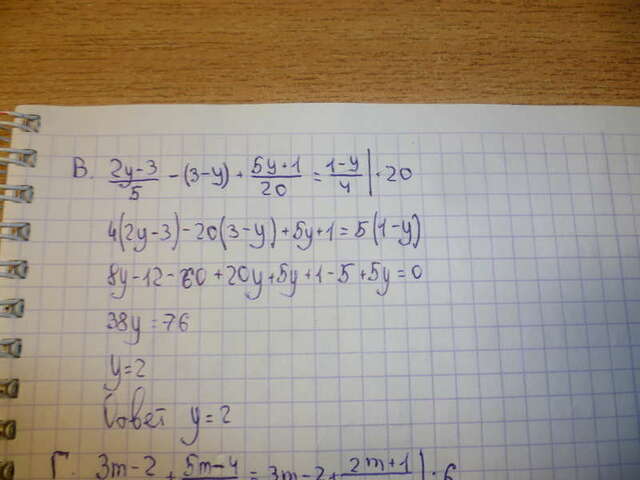 В. (2y-3)/5 - (3-y) + (5y+1)/20 = (1-y)/4 | ·20
4(2y-3)-20(3-y)+5y+1=5(1-y)
8y-12-60+20y+5y+1-5+5y=0
38y=76
y=2
Ответ y=2
Г. 3m-2 + 5m-4 = 3m-2 + 2m+1 | ·6